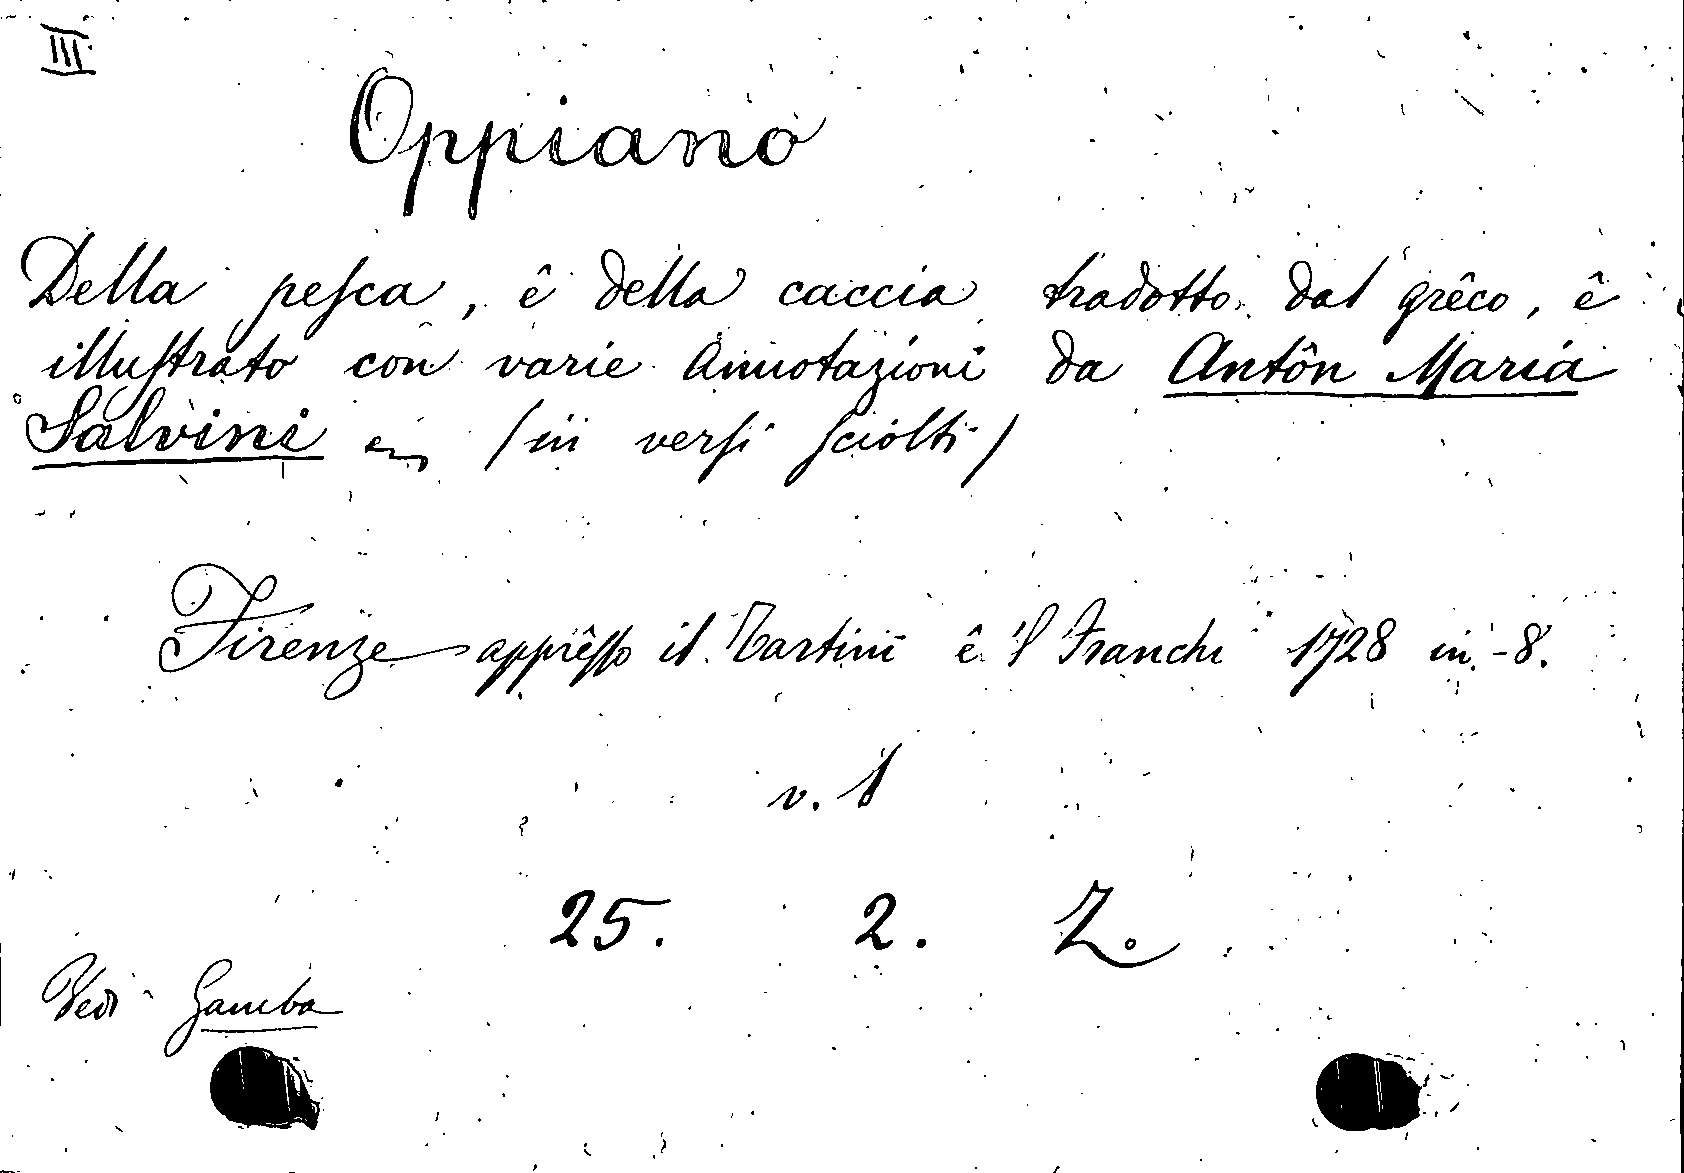 III
Oppiano
Della pesca, ê della caccia tradotto dal grêco, ê
illustrato con varie Annotazioni da Antôn Maria
Salvini /in versi sciolti/
Firenze apprêsso il Tartini ê 'l Franchi 1728 in-8.
v. 1
25. 2. Z.
Vedi Gamba